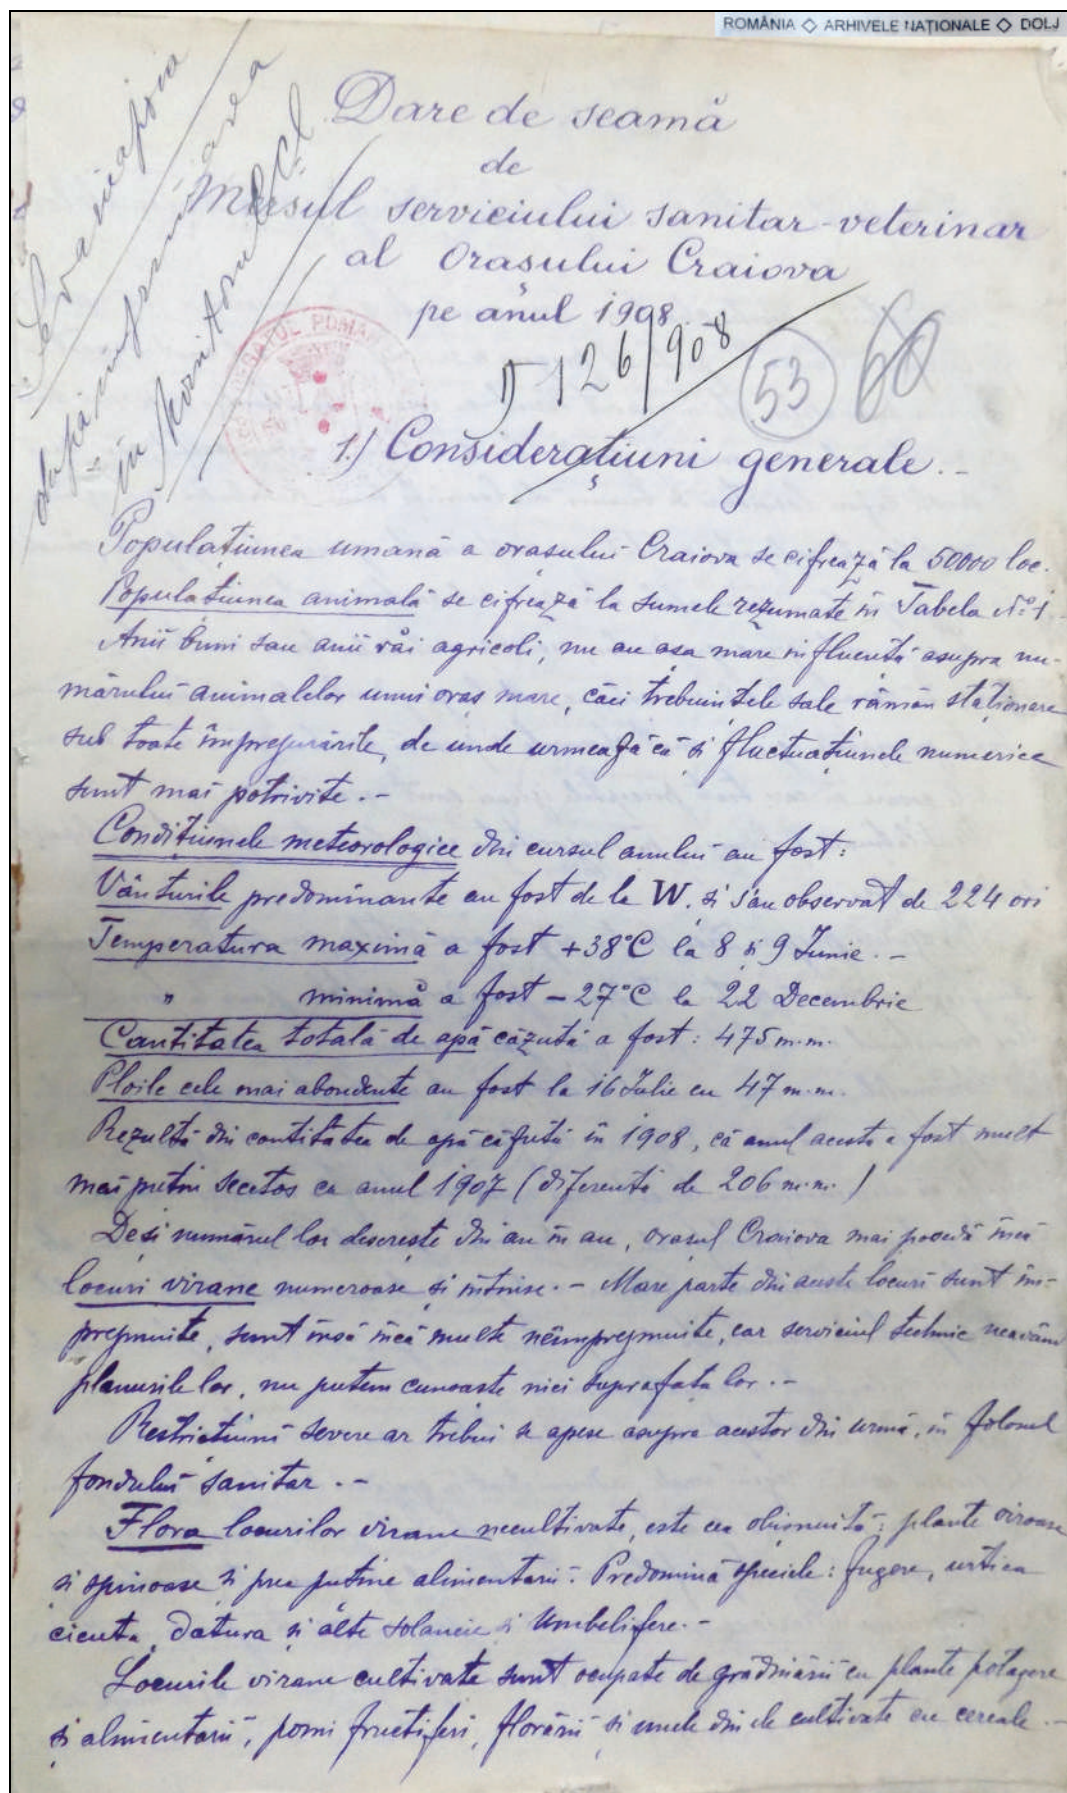 ROMÂNIA ◇ ARHIVELE NAȚIONALE ◇ DOLJ
Dare de seamă
de
Mersul serviciului sanitar-veterinar
al Orașului Craiova
pe anul 1908.
126/908
53 60
1.) Considerațiuni generale.-
după informarea
în Monitorul
Populațiunea umană a orașului Craiova se cifrează la 50000 loc.
Populațiunea animală se cifrează la sumele rezumate în Tabela No 1
Anii buni sau anii răi agricoli, nu au așa mare influență asupra nu-
mărului animalelor unui oraș mare, căci trebuințele sale rămân staționare
sub toate împrejurările, de unde urmează că și fluctuațiunele numerice
sunt mai potrivite.-
Condițiunele meteorologice din cursul anului au fost:
Vânturile predominante au fost de la W. și s'au observat de 224 ori
Temperatura maximă a fost +38°C la 8 și 9 Iunie.-
" minimă a fost -27°C la 22 Decembrie
Cantitatea totală de apă căzută a fost: 475 m.m.
Ploile cele mai abondente au fost la 16 Iulie cu 47 m.m.
Rezultă din cantitatea de apă căzută în 1908, că anul acesta a fost mult
mai puțin secetos ca anul 1907 (diferență de 206 m.m.)
Deși numărul lor descrește din an în an, orașul Craiova mai posedă încă
locuri virane numeroase și întinse.- Mare parte din aceste locuri sunt îm-
prejmuite, sunt însă încă multe neîmprejmuite, iar serviciul technic neavând
planurile lor, nu putem cunoaște nici suprafața lor.-
Restricțiuni severe ar trebui să apese asupra acestor din urmă, în folosul
fondului sanitar.-
Flora locurilor virane necultivate, este cea obișnuită: plante viroase
și spinoase și prea puține alimentarii. Predomină speciile: fugere, urtica
cicuta, datura și alte solaneie și Umbelifere.-
Locurile virane cultivate sunt ocupate de grădinării cu plante potagere
și alimentarii, pomi fructiferi, florării și unele din ele cultivate cu cereale.-